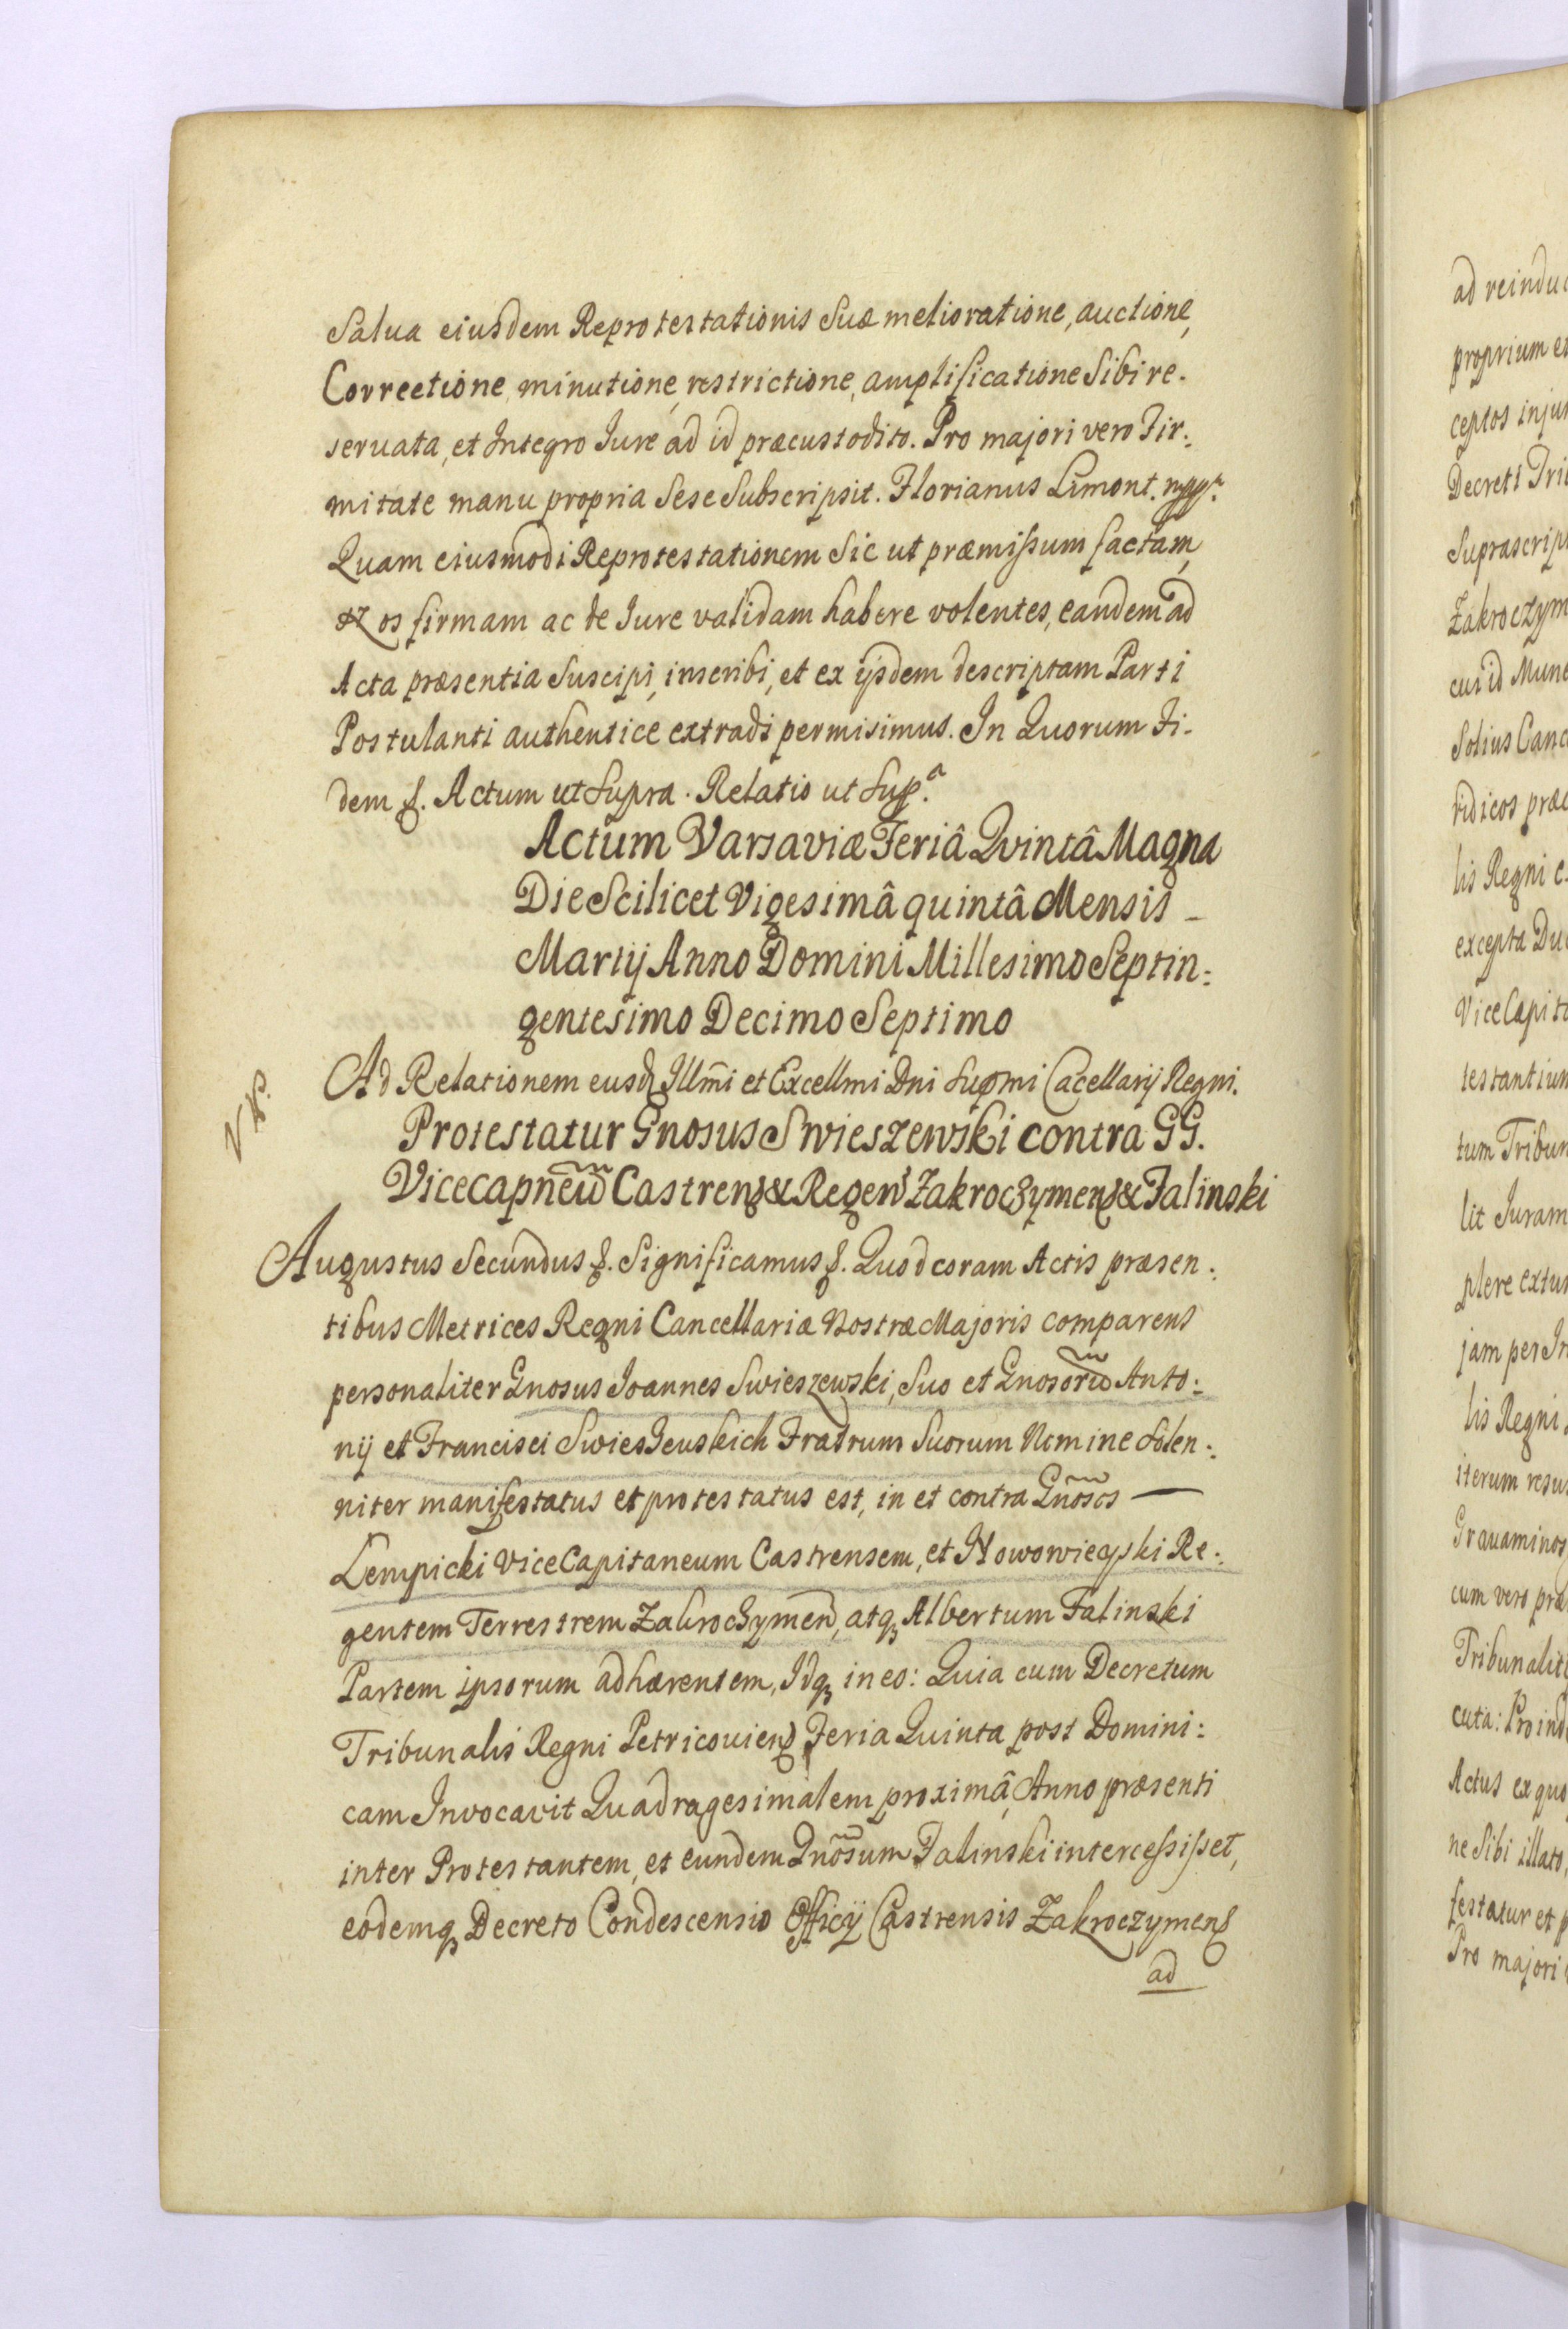 Salua eiusdem Reprotestationis Suæ melioratione, auctione,
Correctione, minutione, restrictione, amplificatione Sibi re-
seruata, et Integro Iure ad id præcustodito. Pro majori vero Fir:
mitate manu propria Sese Subscripsit. Florianus Limont. mpp.
Quam eiusmodi Reprotestationem Sic ut præmissum factam,
os firmam ac de Iure validam habere volentes, eandem ad
Acta præsentia Suscipi, inscribi, et ex ijsdem descriptam Parti
Postulanti authentice extradi permisimus. In Quorum Fi-
dem &. Actum ut Supra. Relatio ut Sup.ª
Actum Varsaviæ Feriâ Qvintâ Magna
Die Scilicet Vigesimâ quintâ Mensis -
Martij Anno Domini Millesimo Septin:
gentesimo Decimo Septimo
Ad Relationem eusd Illm̃i et Excellmi Dni Supmi Cacellarij Regni.
Protestatur Gnosus Swieszewski contra GG.
Vicecapneũ Castrens & Regen Zakroczymens & Falinski
Augustus Secundus &. Significamus &. Quod coram Actis præsen:
tibus Metrices Regni Cancellariæ Nostræ Majoris comparens
personaliter Gnosus Ioannes Swieszewski, Suo et Gnosorũ Anto:
nij et Francisci Swieszeuskich Fratrum Suorum Nomine Solen:
niter manifestatus et protestatus est, in et contra Gñosos —
Lempicki ViceCapitaneum Castrensem, et Nowowieyski Re:
gentem Terrestrem Zakroczymen, atq Albertum Falinski
Partem ipsorum adhærentem, Idq in eo: Quia cum Decretum
Tribunalis Regni Petricouiens Feria Quinta post Domini:
cam Invocavit Quadragesimalem proximâ, Anno præsenti
inter Protestantem, et eundem Gnõsum Falinski intercessisset,
eodemq Decreto Condescensio Officij Castrensis Zakroczymens
ad
ad reinduc
proprium et
ceptos injur
Decreti Tri
Suprascrip
Zakroczym
cui id Mune
Solius Canc
ridicos præ
lis Regni
excepta Du
ViceCapit
testantium
tum Tribun
lit Juram
plere extu
jam per In
lis Regni
iterum resu
Grauamino
cum vero præ
Tribunalit
cuta: Proind
Actus ex quo
ne Sibi illato,
festatur et p
Pro majori